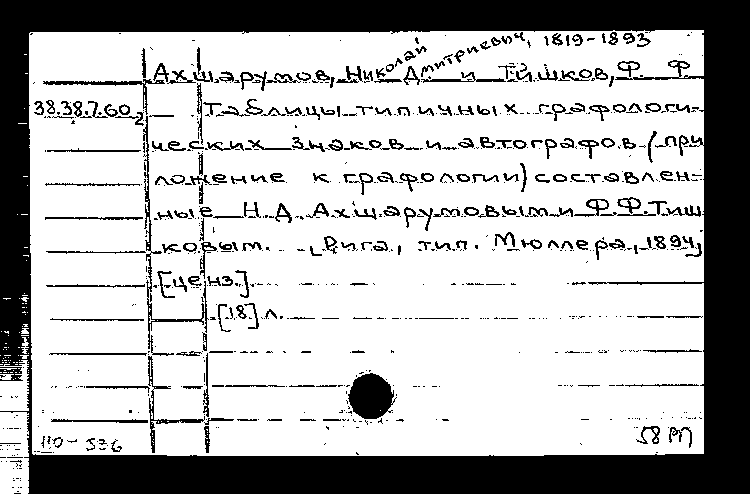 Ахшарумов, Николай Дмитриевич, 1819-1893 и Тишков, Ф. Ф
38.38.7.60₂ Таблицы типичных графологи-
ческих знаков и автографов (при
ложение к графологии) составлен-
ные Н.Д. Ахшарумовым и Ф.Ф. Тиш
ковым. - [Рига, тип. Мюллера, 1894]
[ценз.].
[18] л.
110-536 58 РП